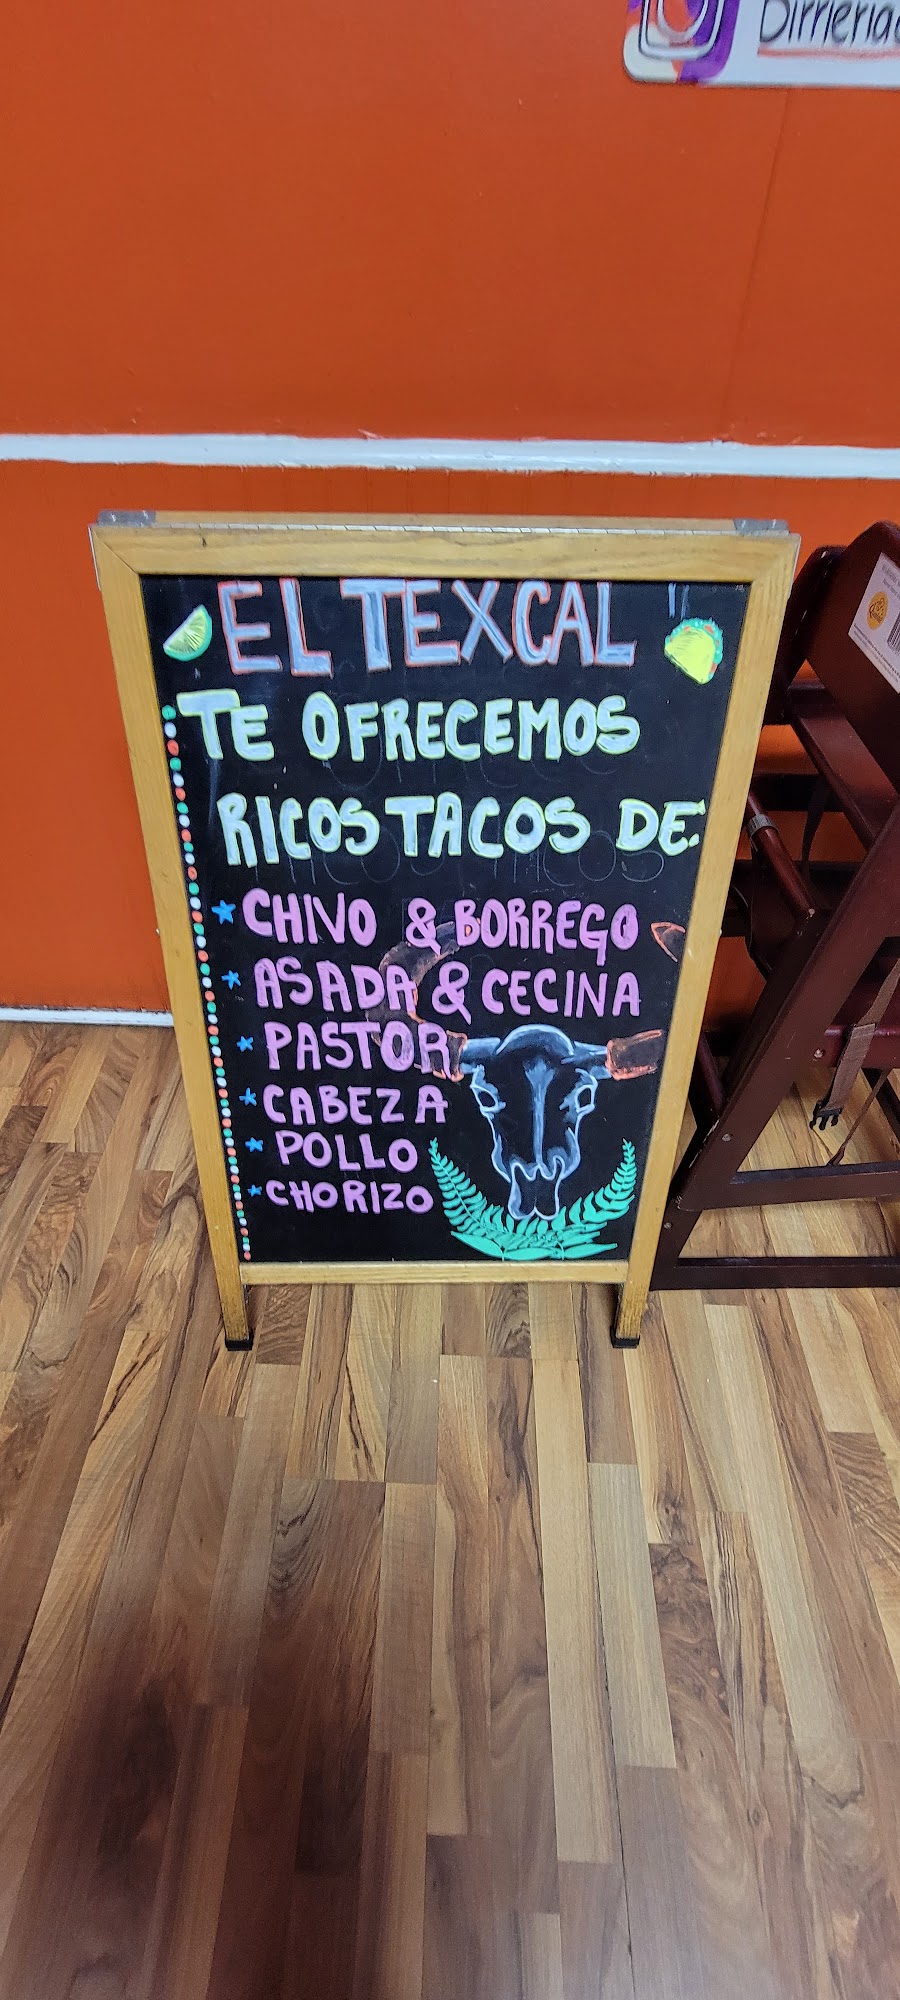 EL TEXCAL
TE OFRECEMOS
RICOS TACOS DE:
CHIVO & BORREGO
ASADA & CECINA
PASTOR
CABEZA
POLLO
CHORIZO